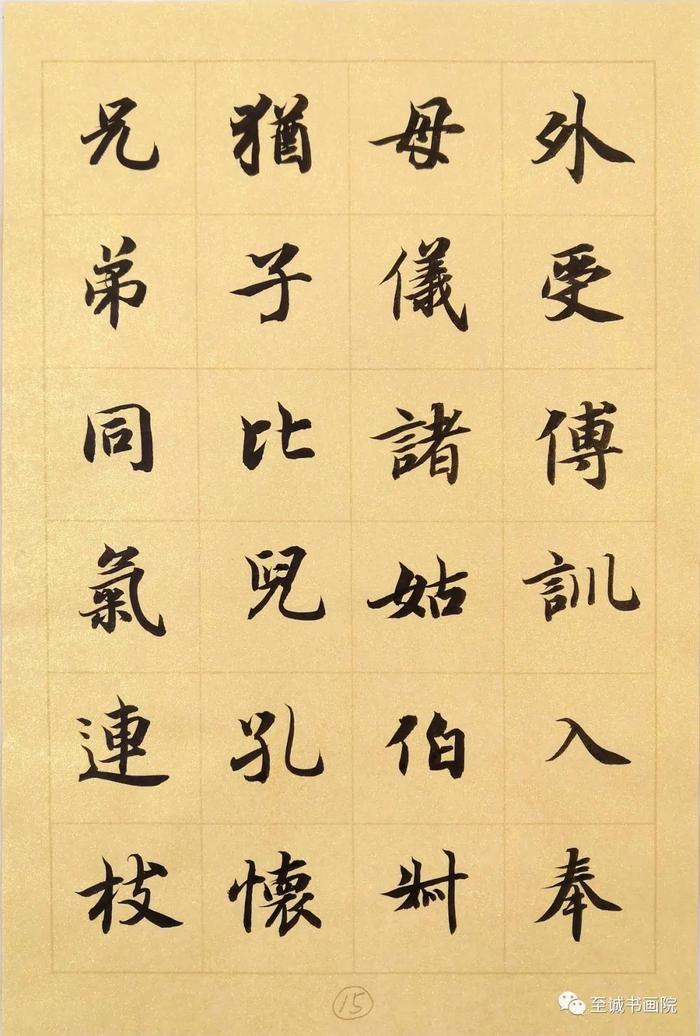 外受傅訓入奉
母儀諸姑伯叔
猶子比兒孔懷
兄弟同氣連枝
15
至诚书画院